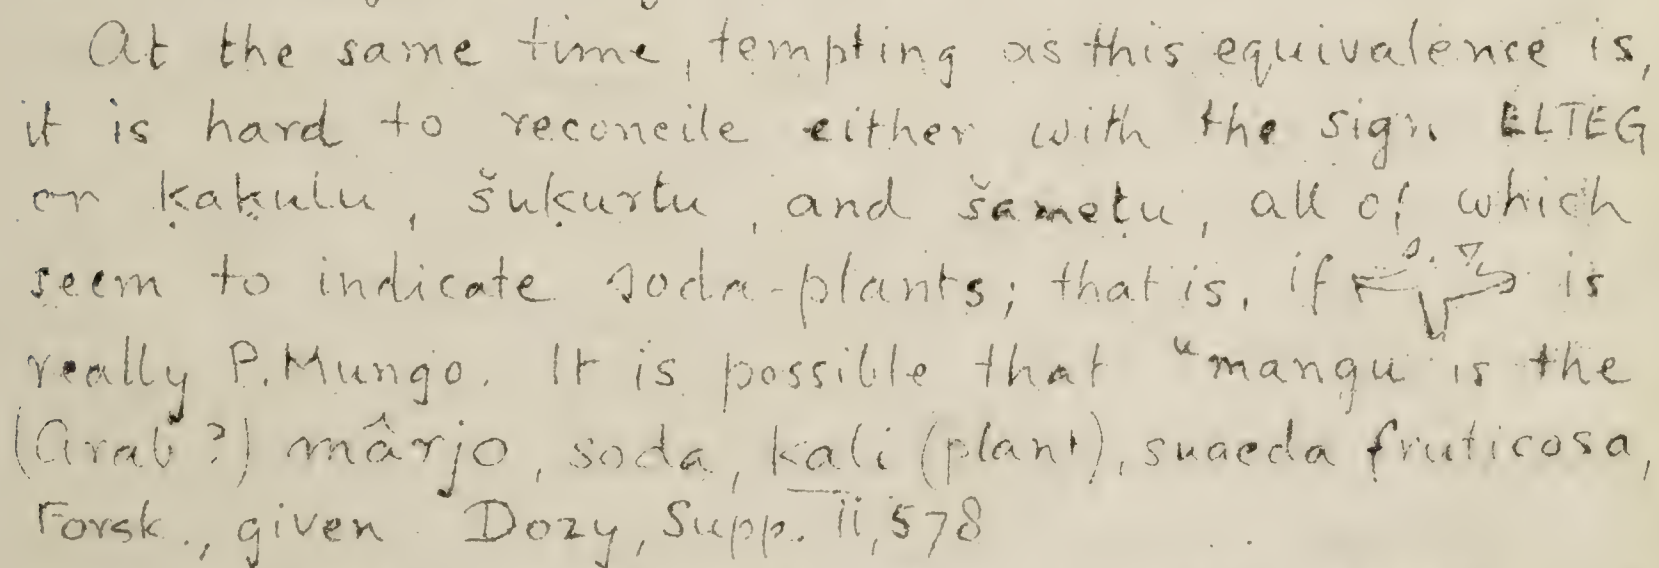 At the same time, tempting as this equivalence is,
it is hard to reconcile either with the sign ELTEG
or ḳaḳulu, šuḳurtu, and šameṭu, all of which
seem to indicate soda-plants; that is, if is
really P. Mungo. It is possible that "mangu is the
(Arab?) mârjo, soda, kali (plant), suaeda fruticosa,
Forsk., given Dozy, Supp. ii, 578